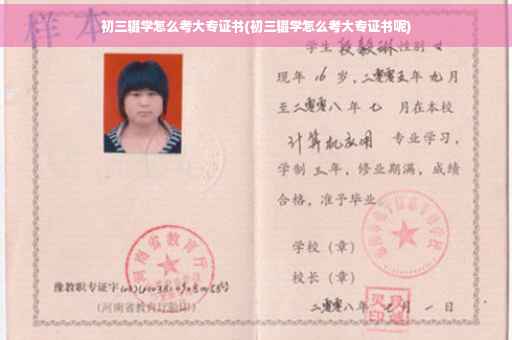 初三辍学怎么考大专证书(初三辍学怎么考大专证书呢)
样本
学生段毅琳性别女
现年16岁,二零零五年九月
至二零零八年七 月在本校
计算机应用 专业学习,
学制三年,修业期满,成绩
合格,准予毕业
学校(章)
校长(章)
二零零八年七月一日
河南省教育厅
豫教职专证字
(河南省教育厅验印)